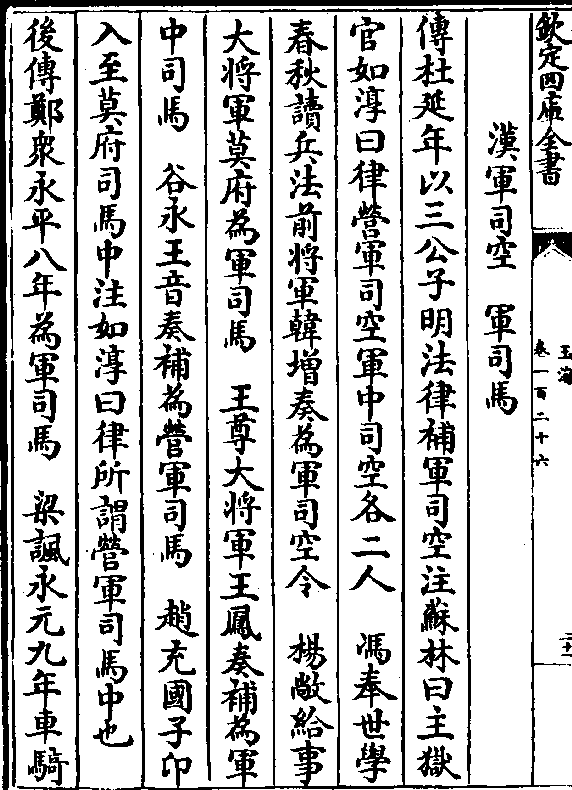 欽定四庫全書
玉海
卷一百二十六
漢軍司空　軍司馬
傳杜延年以三公子明法律補軍司空注蘇林曰主獄
官如淳曰律營軍司空軍中司空各二人　馮奉世學
春秋讀兵法前將軍韓增奏為軍司空令　楊敞給事
大將軍莫府為軍司馬　王尊大將軍王鳳奏補為軍
中司馬　谷永王音奏補為營軍司馬　趙充國子卬
入至莫府司馬中注如淳曰律所謂營軍司馬中也
後傳鄭衆永平八年為軍司馬　梁諷永元九年車騎